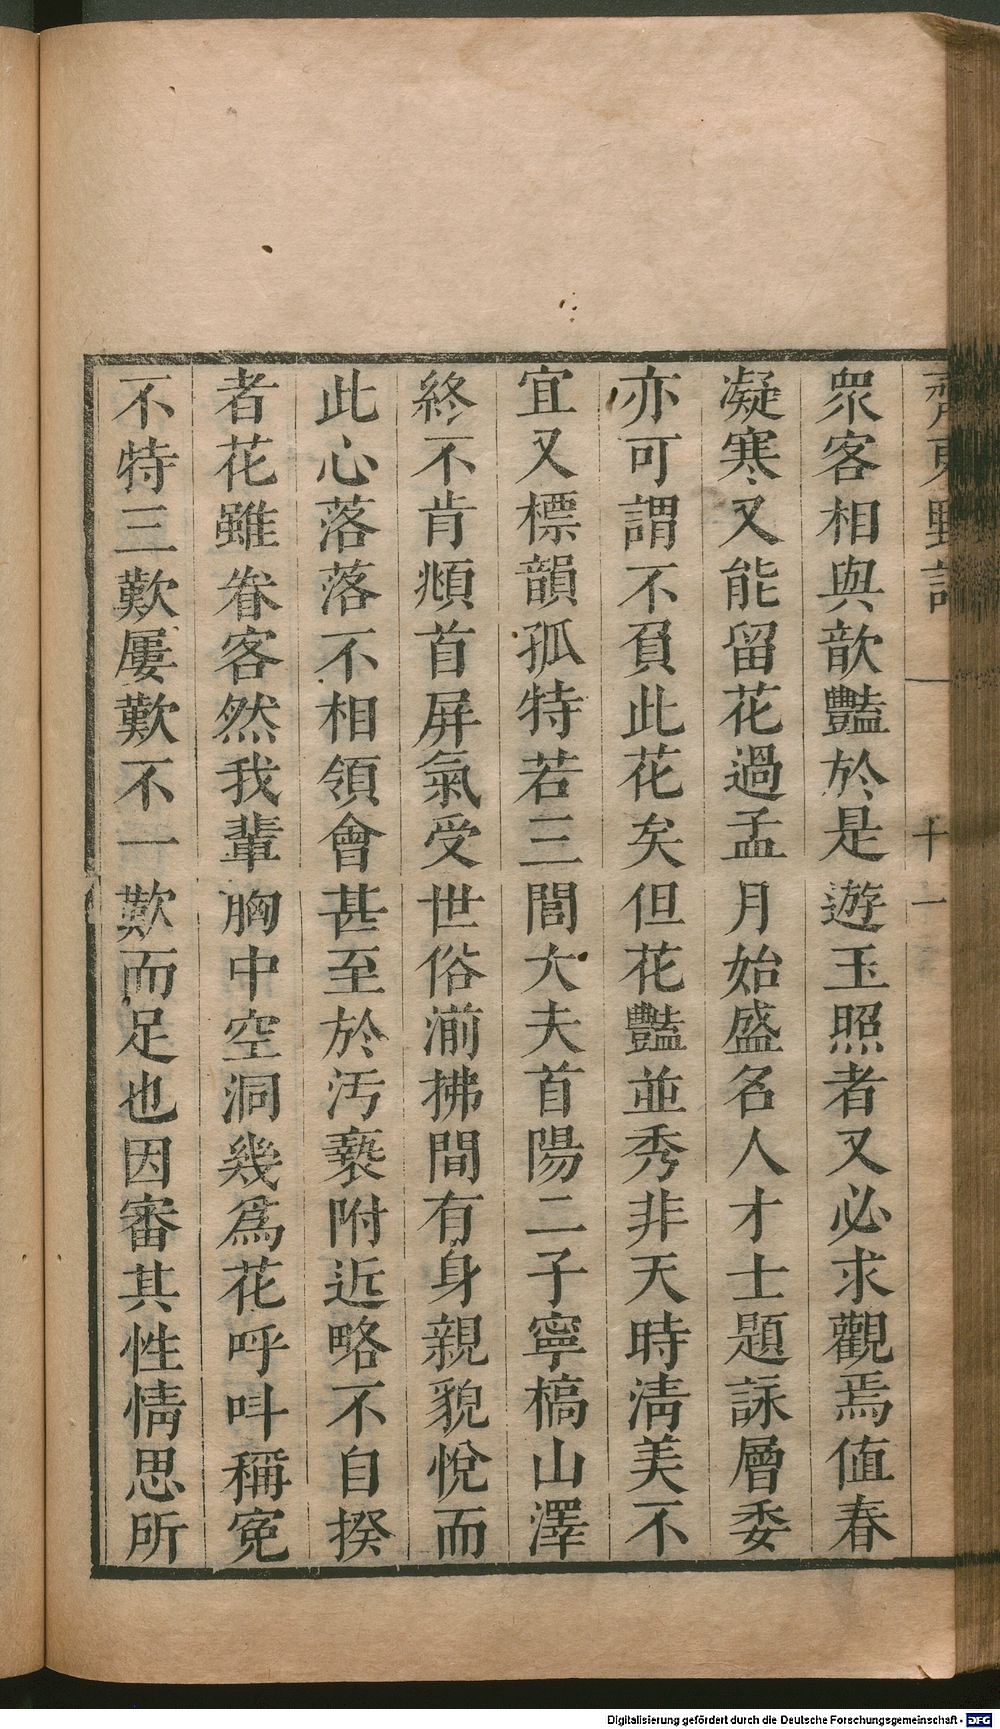 齊東野語 十一
衆客相與歆豔於是遊玉照者又必求觀焉值春
凝寒又能留花過孟月始盛名人才士題詠層委
亦可謂不負此花矣但花豔並秀非天時清美不
宜又標韻孤特若三閭大夫首陽二子寧槁山澤
終不肯頫首屏氣受世俗湔拂間有身親貌悅而
此心落落不相領會甚至於污褻附近略不自揆
者花雖眷客然我輩胸中空洞幾爲花呼叫稱冤
不特三歎屢歎不一歎而足也因審其性情思所
Digitalisierung gefördert durch die Deutsche Forschungsgemeinschaft - DFG